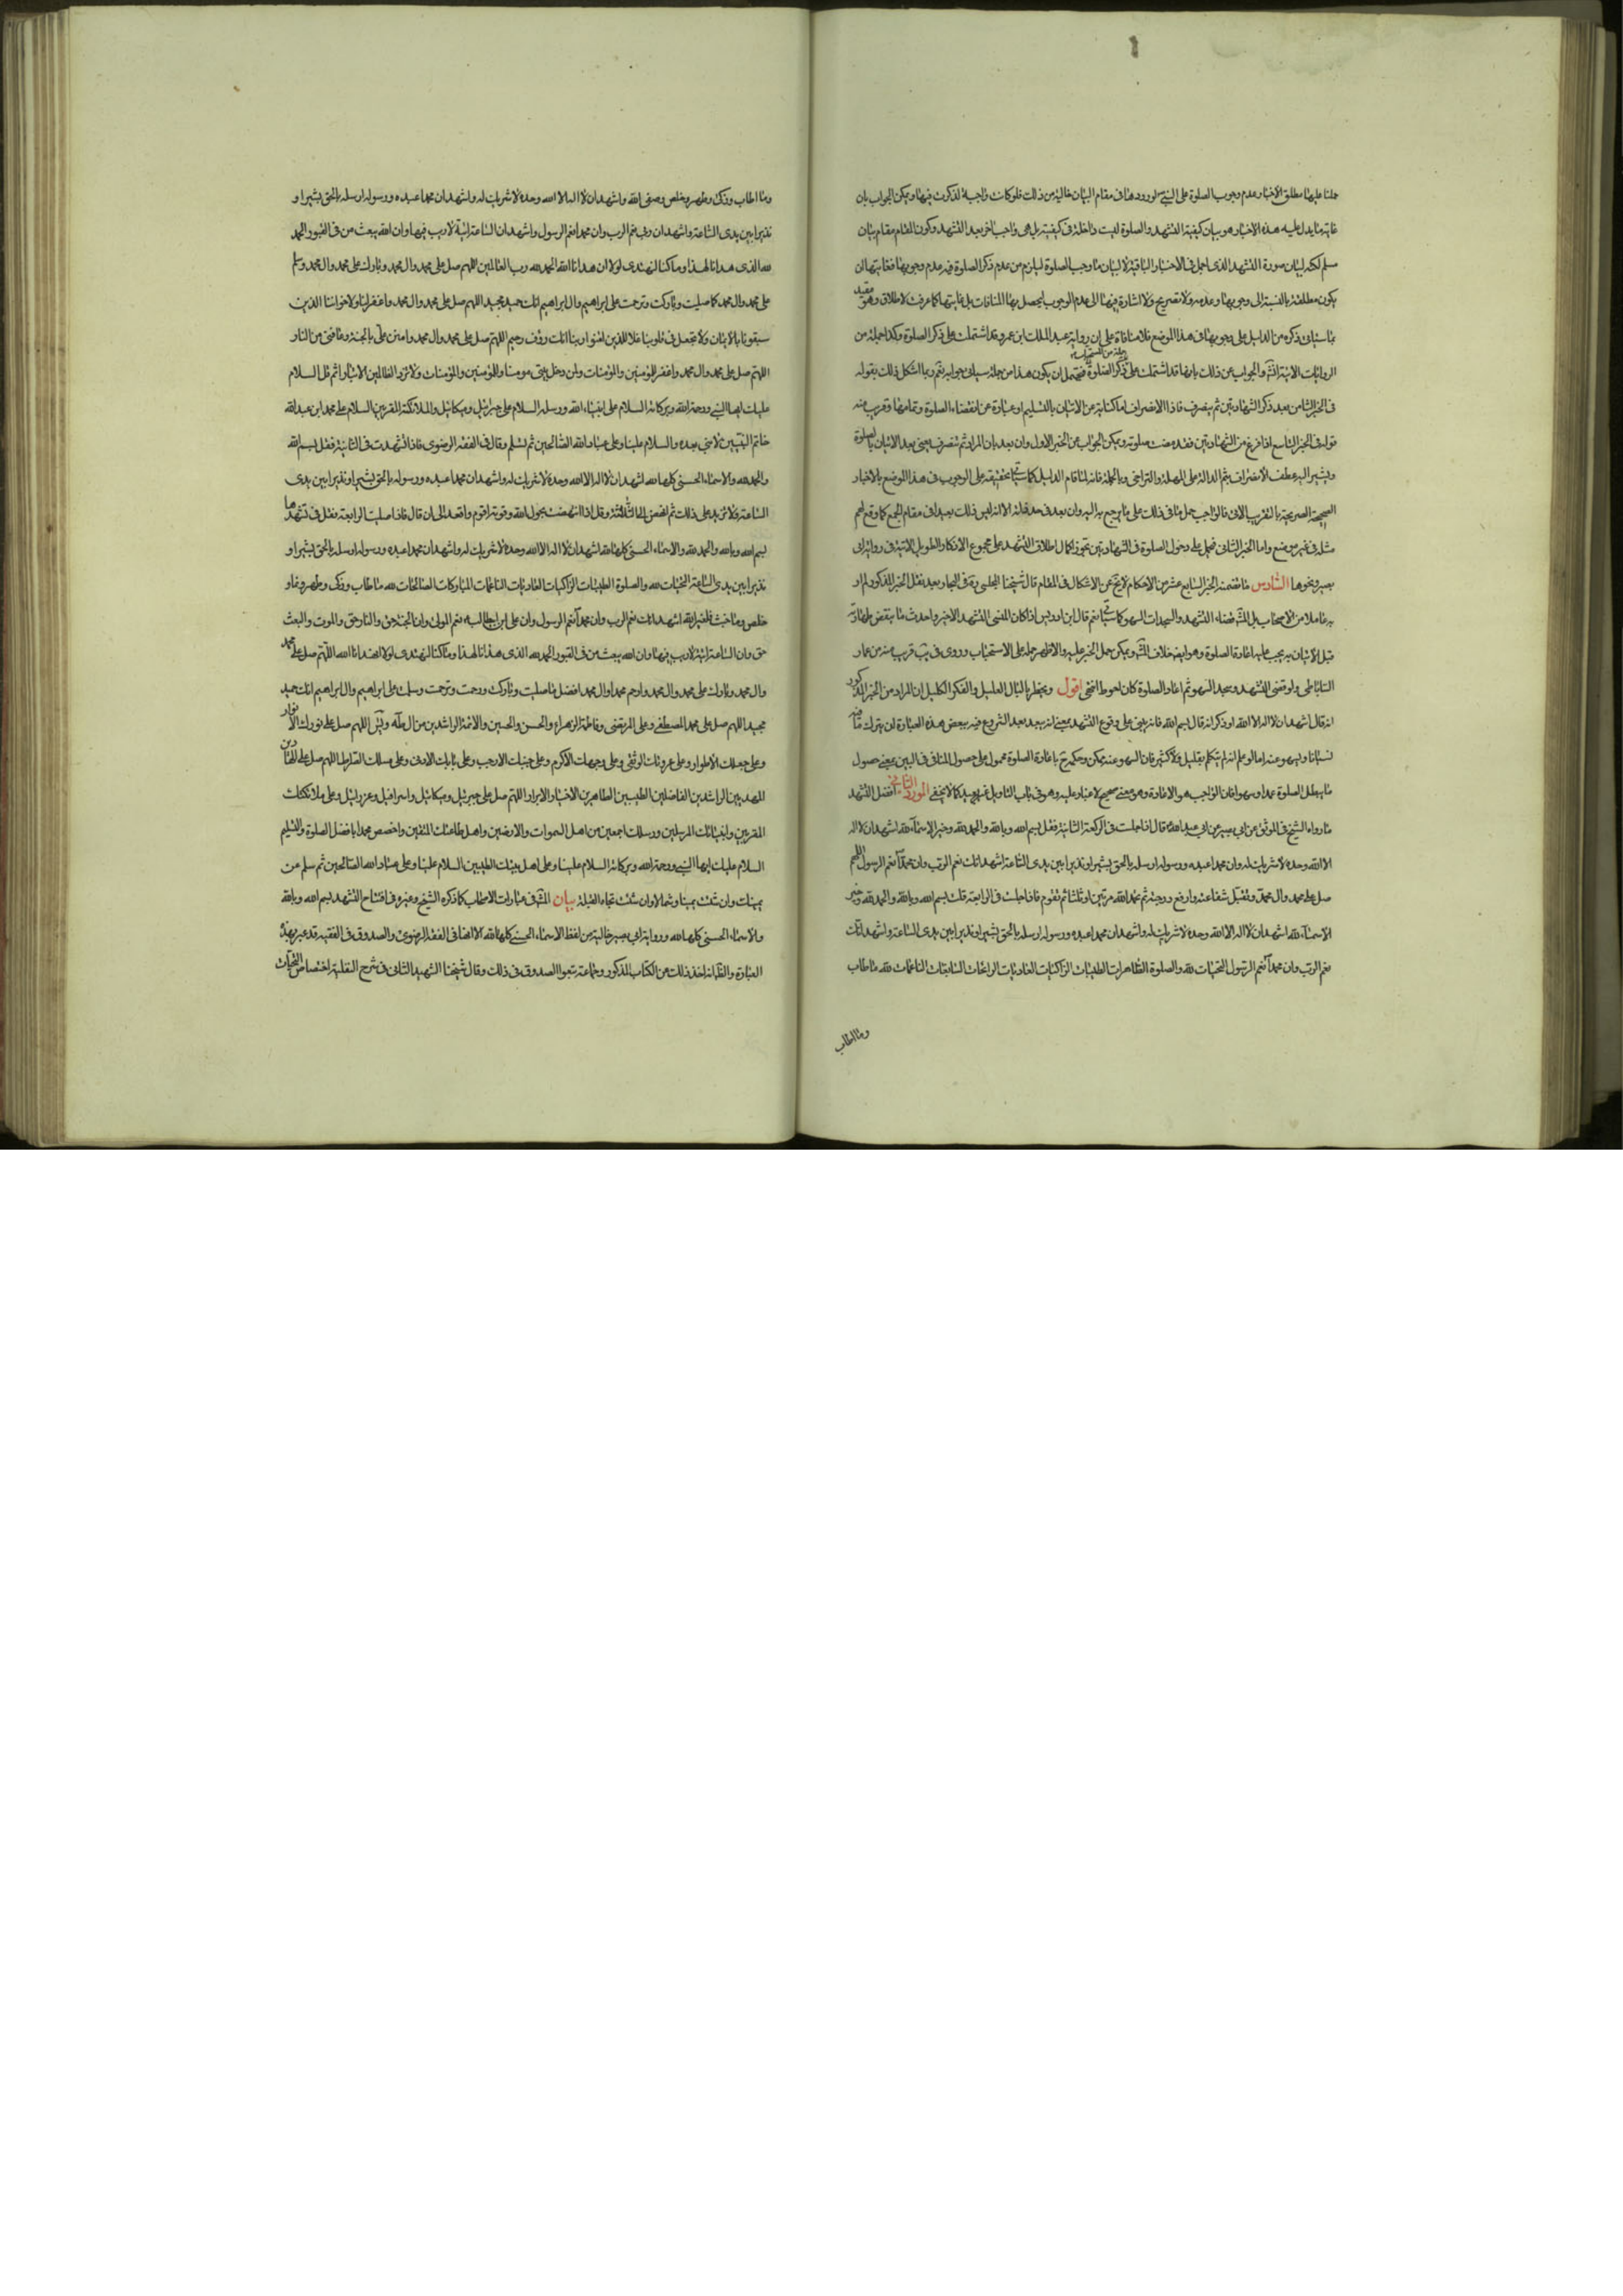 حملنا عليها مطلق الأخبار وعدم وجوب الصلوة على النبي ص لورودها في مقام البيان خالية من ذلك فلو كانت واجبة لذكرت فيها ويمكن الجواب بان
غاية ما يدل عليه هذه الاخبار هو بيان كيفية التشهد والصلوة ليست داخلة في كيفيته بل هي واجب اخر بعد التشهد وكون المقام مقام بيان
مسلم لكنه لبيان صورة التشهد الذي اجمل في الاخبار الباقية لا لبيان ما وجب الصلوة ليلزم من عدم ذكر الصلوة فيه عدم وجوبها فغايتها ان
يكون مطلقة بالنسبة الى وجوبها وعدمه ولا تصريح ولا اشارة فيها الى عدم الوجوب ليحصل بها المنافات بل غايتها كما عرفت الاطلاق وهو مقيد
بما سيأتي ذكره من الدليل على وجوبها في هذا الموضع فلا منافاة على ان رواية عبد الملك ابن عمرو قد اشتملت على ذكر الصلوة وكذا جملة من
الروايات الاتية
في الخبر الثامن بعد ذكر الشهادتين ثم ينصرف فاذا الانصراف اما كناية عن الاتيان بالتسليم او عبارة عن انقضاء الصلوة وتمامها وقريب منه
قوله في الخبر التاسع اذا فرغ من الشهادتين فقد مضت صلوته ويمكن الجواب عن الخبر الاول وان بعد بان المراد ثم تنصرف يعني بعد الاتيان بالصلوة
ويشير اليه عطف الانصراف بثم الدالة على المهلة والتراخي وبالجملة فانه لما قام الدليل كما ستأتي تحقيقه على الوجوب في هذا الموضع بالاخبار
الصحيحة الصريحة بالتقريب الاتي فالواجب حمل ما في ذلك على ما يرجع به اليه وان بعد في حد ذاته الا انه ليس ذلك ببعيد في مقام الجمع كما وقع لهم
مثله في غير موضع واما الخبر الثاني فيحمل على دخول الصلوة في الشهادتين تجوزا كمال اطلاق التشهد على مجموع الاذكار الطويل الاتية في رواية ابي
بصير ونحوها السادس ما تضمنه الخبر السابع عشر من الاحكام لا يخ عن الاشكال في المقام قال شيخنا المجلسي ره في البحار بعد نقل الخبر المذكور لم ار
به عاملا من الاصحاب بل المشهور قضاء التشهد والسجدات السهو كما سيأتي نعم قال ابن ادريس اذا كان المنسي التشهد الاخير واحدث ما ينقض طهارته
قبل الاتيان به يجب عليه اعادة الصلوة وهو ايضا خلاف المشهور ويمكن حمل الخبر عليه والاظهر حمله على الاستحباب وروى في يب قريب منه عن عمار
الساباطي ولو قضى التشهد وسجد السهو ثم اعاد الصلوة كان احوط انتهى اقول ويخطر بالبال العليل والفكر الكليل ان المراد من الخبر المذكور
انه قال اشهد ان لا اله الا الله او ذكر انه قال بسم الله فانه يبني على وقوع التشهد بمعنى انه بعد الشروع فيه ببعض هذه العبارة لن يترك ما فيه
نسيانا وسهوا عنه اما لو علم انه لم يتكلم بقليل ولا كثير فان السهو عنه ممكن وحكمه ح باعادة الصلوة محمول على حصول المنافي في البين بمعنى حصول
ما يبطل الصلوة عمدا وسهوا فان الواجب هو الاعادة وهو معنى صحيح لا غبار عليه وهو في باب التأويل غير بعيد كما لا يخفى المورد الثاني افضل التشهد
ما رواه الشيخ في الموثق عن ابي بصير عن ابي عبد الله ع قال اذا جلست في الركعة الثانية فقل بسم الله وبالله والحمد لله وخير الاسماء لله اشهد ان لا اله
الا الله وحده لا شريك له وان محمدا عبده ورسوله ارسله بالحق بشيرا ونذيرا بين يدي الساعة اشهد انك نعم الرب وان محمدا نعم الرسول اللهم
صل على محمد وال محمد وتقبل شفاعته وارفع درجته ثم تحمد الله مرتين او ثلثا ثم تقوم فاذا جلست في الرابعة قلت بسم الله وبالله والحمد لله وخير
الاسماء لله اشهد ان لا اله الا الله وحده لا شريك له واشهد ان محمدا عبده ورسوله ارسله بالحق بشيرا ونذيرا بين يدي الساعة واشهد انك
نعم الرب وان محمدا نعم الرسول التحيات لله والصلوة الطاهرات الطيبات الزاكيات الغاديات الرائحات السابغات الناعمات لله ما طاب
وما طاب
وما طاب وزكى وطهر وخلص وصفى لله واشهد ان لا اله الا الله وحده لا شريك له واشهد ان محمدا عبده ورسوله ارسله بالحق بشيرا و
نذيرا بين يدي الساعة واشهد ان ربي نعم الرب وان محمدا نعم الرسول واشهد ان الساعة اتية لا ريب فيها وان الله يبعث من في القبور الحمد
لله الذي هدانا لهذا وما كنا لنهتدي لولا ان هدانا الله الحمد لله رب العالمين اللهم صل على محمد وال محمد وبارك على محمد وال محمد وسلم
على محمد وال محمد كما صليت وباركت وترحمت على ابراهيم وال ابراهيم انك حميد مجيد اللهم صل على محمد وال محمد واغفر لنا ولاخواننا الذين
سبقونا بالايمان ولا تجعل في قلوبنا غلا للذين امنوا ربنا انك رؤف رحيم اللهم صل على محمد وال محمد وامنن علي بالجنة وعافني من النار
اللهم صل على محمد وال محمد واغفر للمؤمنين والمؤمنات ولمن دخل بيتي مومنا وللمؤمنين والمؤمنات ولا تزد الظالمين الا تبارا ثم قل السلام
عليك ايها النبي ورحمة الله وبركاته السلام على انبياء الله ورسله السلام على جبرائيل وميكائيل والملائكة المقربين السلام على محمد ابن عبد الله
خاتم النبيين لا نبي بعده والسلام علينا وعلى عباد الله الصالحين ثم تسلم وقال في الفقه الرضوي فاذا تشهدت في الثانية فقل بسم الله
والحمد لله والاسماء الحسنى كلها لله اشهد ان لا اله الا الله وحده لا شريك له واشهد ان محمدا عبده ورسوله بالحق بشيرا ونذيرا بين يدي
الساعة ولا تزيد على ذلك ثم انهض الى الثالثة وقل اذا انهضت بحول الله وقوته اقوم واقعد الى ان قال فاذا صليت الرابعة فقل في تشهدها
بسم الله وبالله والحمد لله والاسماء الحسنى كلها لله اشهد ان لا اله الا الله وحده لا شريك له واشهد ان محمدا عبده ورسوله ارسله بالحق بشيرا و
نذيرا بين يدي الساعة التحيات لله والصلوة الطيبات الزاكيات الغاديات الناعمات المباركات الصالحات لله ما طاب وزكى وطهر ونما و
خلص وما خبث فلغير الله اشهد انك نعم الرب وان محمدا نعم الرسول وان علي ابن ابيطالب ع نعم المولى وان الجنة حق والنار حق والموت والبعث
حق وان الساعة اتية لا ريب فيها وان الله يبعث من في القبور الحمد لله الذي هدانا لهذا وما كنا لنهتدي لولا ان هدانا الله اللهم صل على محمد
وال محمد وبارك على محمد وال محمد وارحم محمدا وال محمد افضل ما صليت وباركت ورحمت وترحمت وسلمت على ابراهيم وال ابراهيم انك حميد
مجيد اللهم صل على محمد المصطفى وعلي المرتضى وفاطمة الزهراء والحسن والحسين والائمة الراشدين من ال طه ويس اللهم صل على نورك الانوار
وعلى حبلك الاطول وعلى عروتك الوثقى وعلى وجهك الاكرم وعلى جنبك الاوجب وعلى بابك الادنى وعلى مسلك الصراط اللهم صل على الهادين
المهديين الراشدين الفاضلين الطيبين الطاهرين الاخيار الابرار اللهم صل على جبرئيل وميكائيل واسرافيل وعزرائيل وعلى ملائكتك
المقربين وانبيائك المرسلين ورسلك اجمعين من اهل السموات والارضين واهل طاعتك المتقين واخصص محمدا بافضل الصلوة والتسليم
السلام عليك ايها النبي ورحمة الله وبركاته السلام علينا وعلى اهل بيتك الطيبين السلام علينا وعلى عباد الله الصالحين ثم سلم عن
يمينك وان شئت يمينا وشمالا وان شئت تجاه القبلة بيان المشهور في عبارات الاصحاب كما ذكره الشيخ وغيره في افتتاح التشهد بسم الله وبالله
والاسماء الحسنى كلها لله ورواية ابي بصير خالية من لفظ الاسماء الحسنى كلها لله الا انها في الفقه الرضوي والصدوق في الفقيه قد عبر بهذه
العبارة والظاهر انه اخذ ذلك من الكتاب المذكور وجماعة تبعوا الصدوق في ذلك وقال شيخنا الشهيد الثاني في شرح النفلية اختصاص التحيات